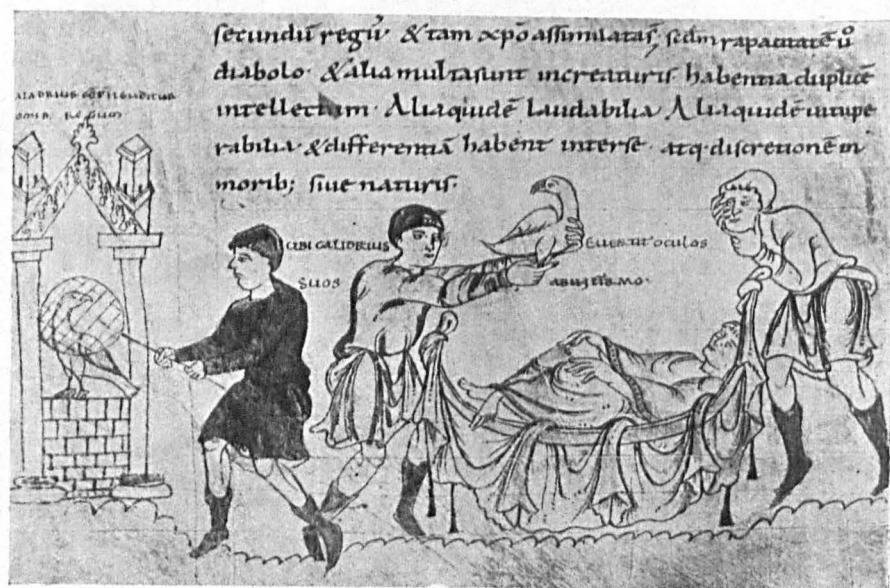 secundū regū· & tam xpō assimilatas, scdm rapacitatē uͦ
diabolo· & alia multa sunt in creaturis· habentia duplicē
intellectum· Alia qiudē laudabilia Alia quidē uitupe
rabilia· & differentiā habent interse· atq· discretionē in
morib; siue naturis·
UBI CALIDRIUS
OCULOS
SUOS